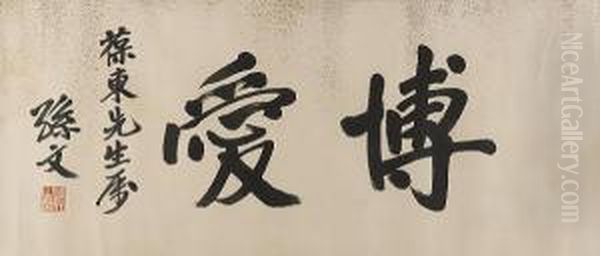 博愛
葆東先生屬
孫文
NiceArtGallery.com